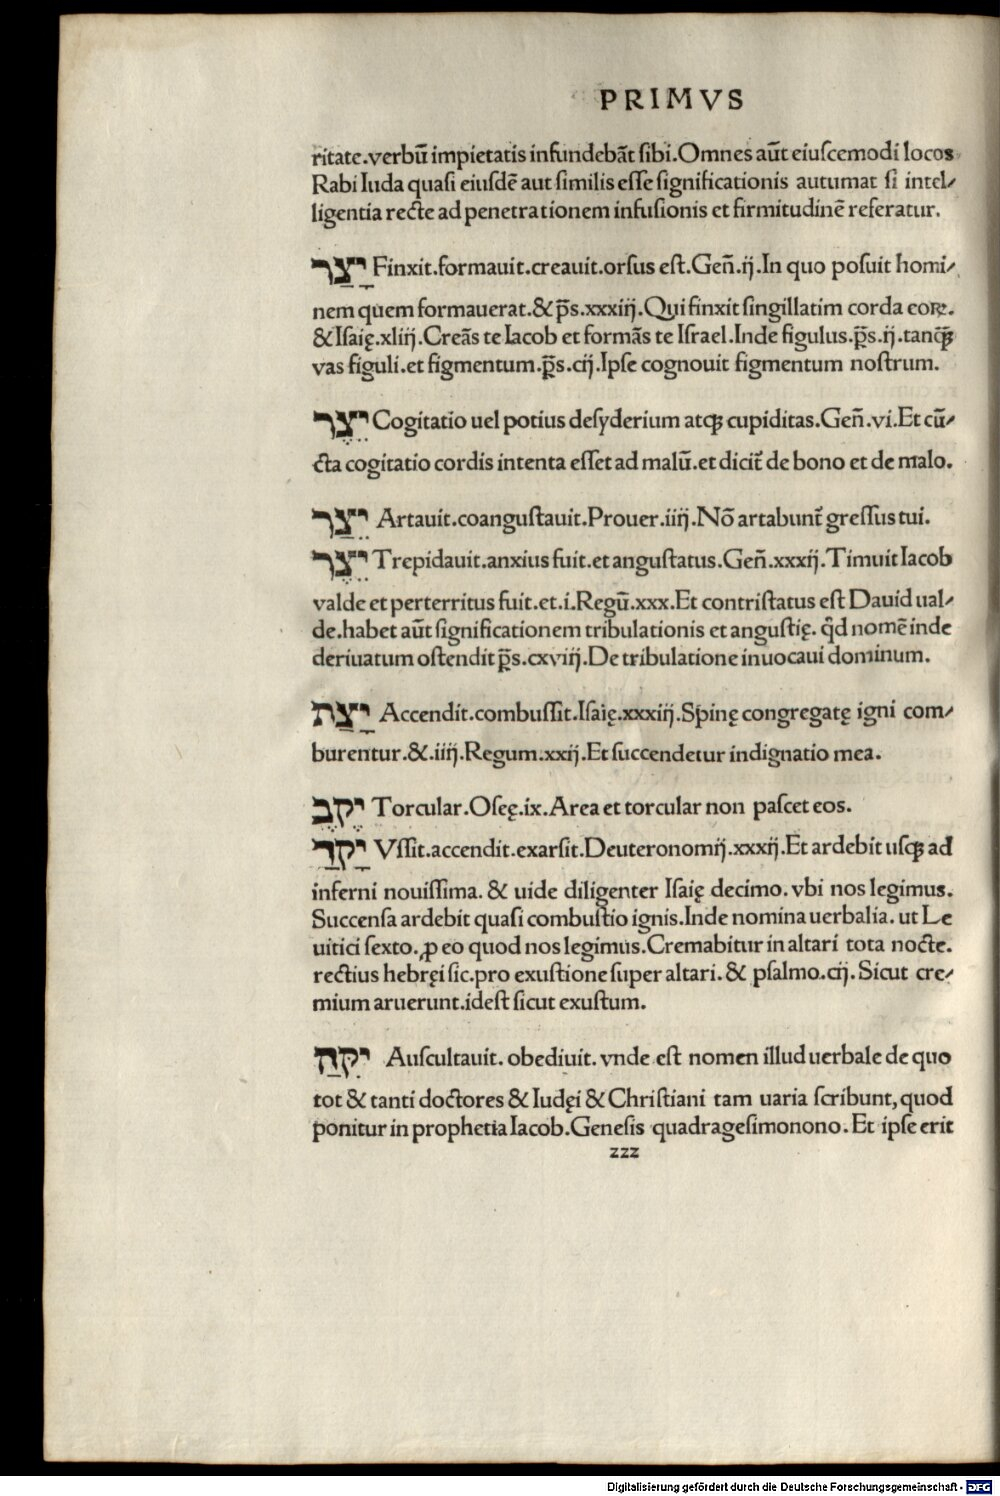 PRIMVS
ritate.verbū impietatis infundebāt sibi.Omnes aūt eiuscemodi locos
Rabi Iuda quasi eiusdē aut similis esse significationis autumat si intel⸗
ligentia recte ad penetrationem infusionis et firmitudinē referatur.
יָצַר Finxit.formauit.creauit.orsus est.Geñ.ij.In quo posuit homi⸗
nem quem formauerat.&p̄s.xxxiij.Qui finxit singillatim corda eoꝝ.
&Isaię.xliij.Creās te Iacob et formās te Israel.Inde figulus.p̄s.ij.tanq̄ꝫ
vas figuli.et figmentum.p̄s.cij.Ipse cognouit figmentum nostrum.
יֵצֶר Cogitatio uel potius desyderium atqꝫ cupiditas.Geñ.vi.Et cū⸗
cta cogitatio cordis intenta esset ad malū.et dicit̄ de bono et de malo.
יֵצַר Artauit.coangustauit.Prouer.iiij.Nō artabunt̄ gressus tui.
יֵצֶר Trepidauit.anxius fuit.et angustatus.Geñ.xxxij.Timuit Iacob
valde et perterritus fuit.et.i.Regū.xxx.Et contristatus est Dauid ual⸗
de.habet aūt significationem tribulationis et angustię. q̄d nomē inde
deriuatum ostendit p̄s.cxviij.De tribulatione inuocaui dominum.
יָצַת Accendit.combussit.Isaię.xxxiij.Spinę congregatę igni com⸗
burentur.&.iiij.Regum.xxij.Et succendetur indignatio mea.
יֶקֶב Torcular.Oseę.ix.Area et torcular non pascet eos.
יָקַד Vssit.accendit.exarsit.Deuteronomij.xxxij.Et ardebit usqꝫ ad
inferni nouissima. & uide diligenter Isaię decimo. vbi nos legimus.
Succensa ardebit quasi combustio ignis.Inde nomina uerbalia. ut Le
uitici sexto.ꝓ eo quod nos legimus.Cremabitur in altari tota nocte.
rectius hebręi sic.pro exustione super altari. & psalmo.cij. Sicut cre⸗
mium aruerunt.idest sicut exustum.
יִקַּה Auscultauit. obediuit. vnde est nomen illud uerbale de quo
tot & tanti doctores & Iudęi & Christiani tam uaria scribunt, quod
ponitur in prophetia Iacob.Genesis quadragesimonono. Et ipse erit
zzz
Digitalisierung gefördert durch die Deutsche Forschungsgemeinschaft - DFG